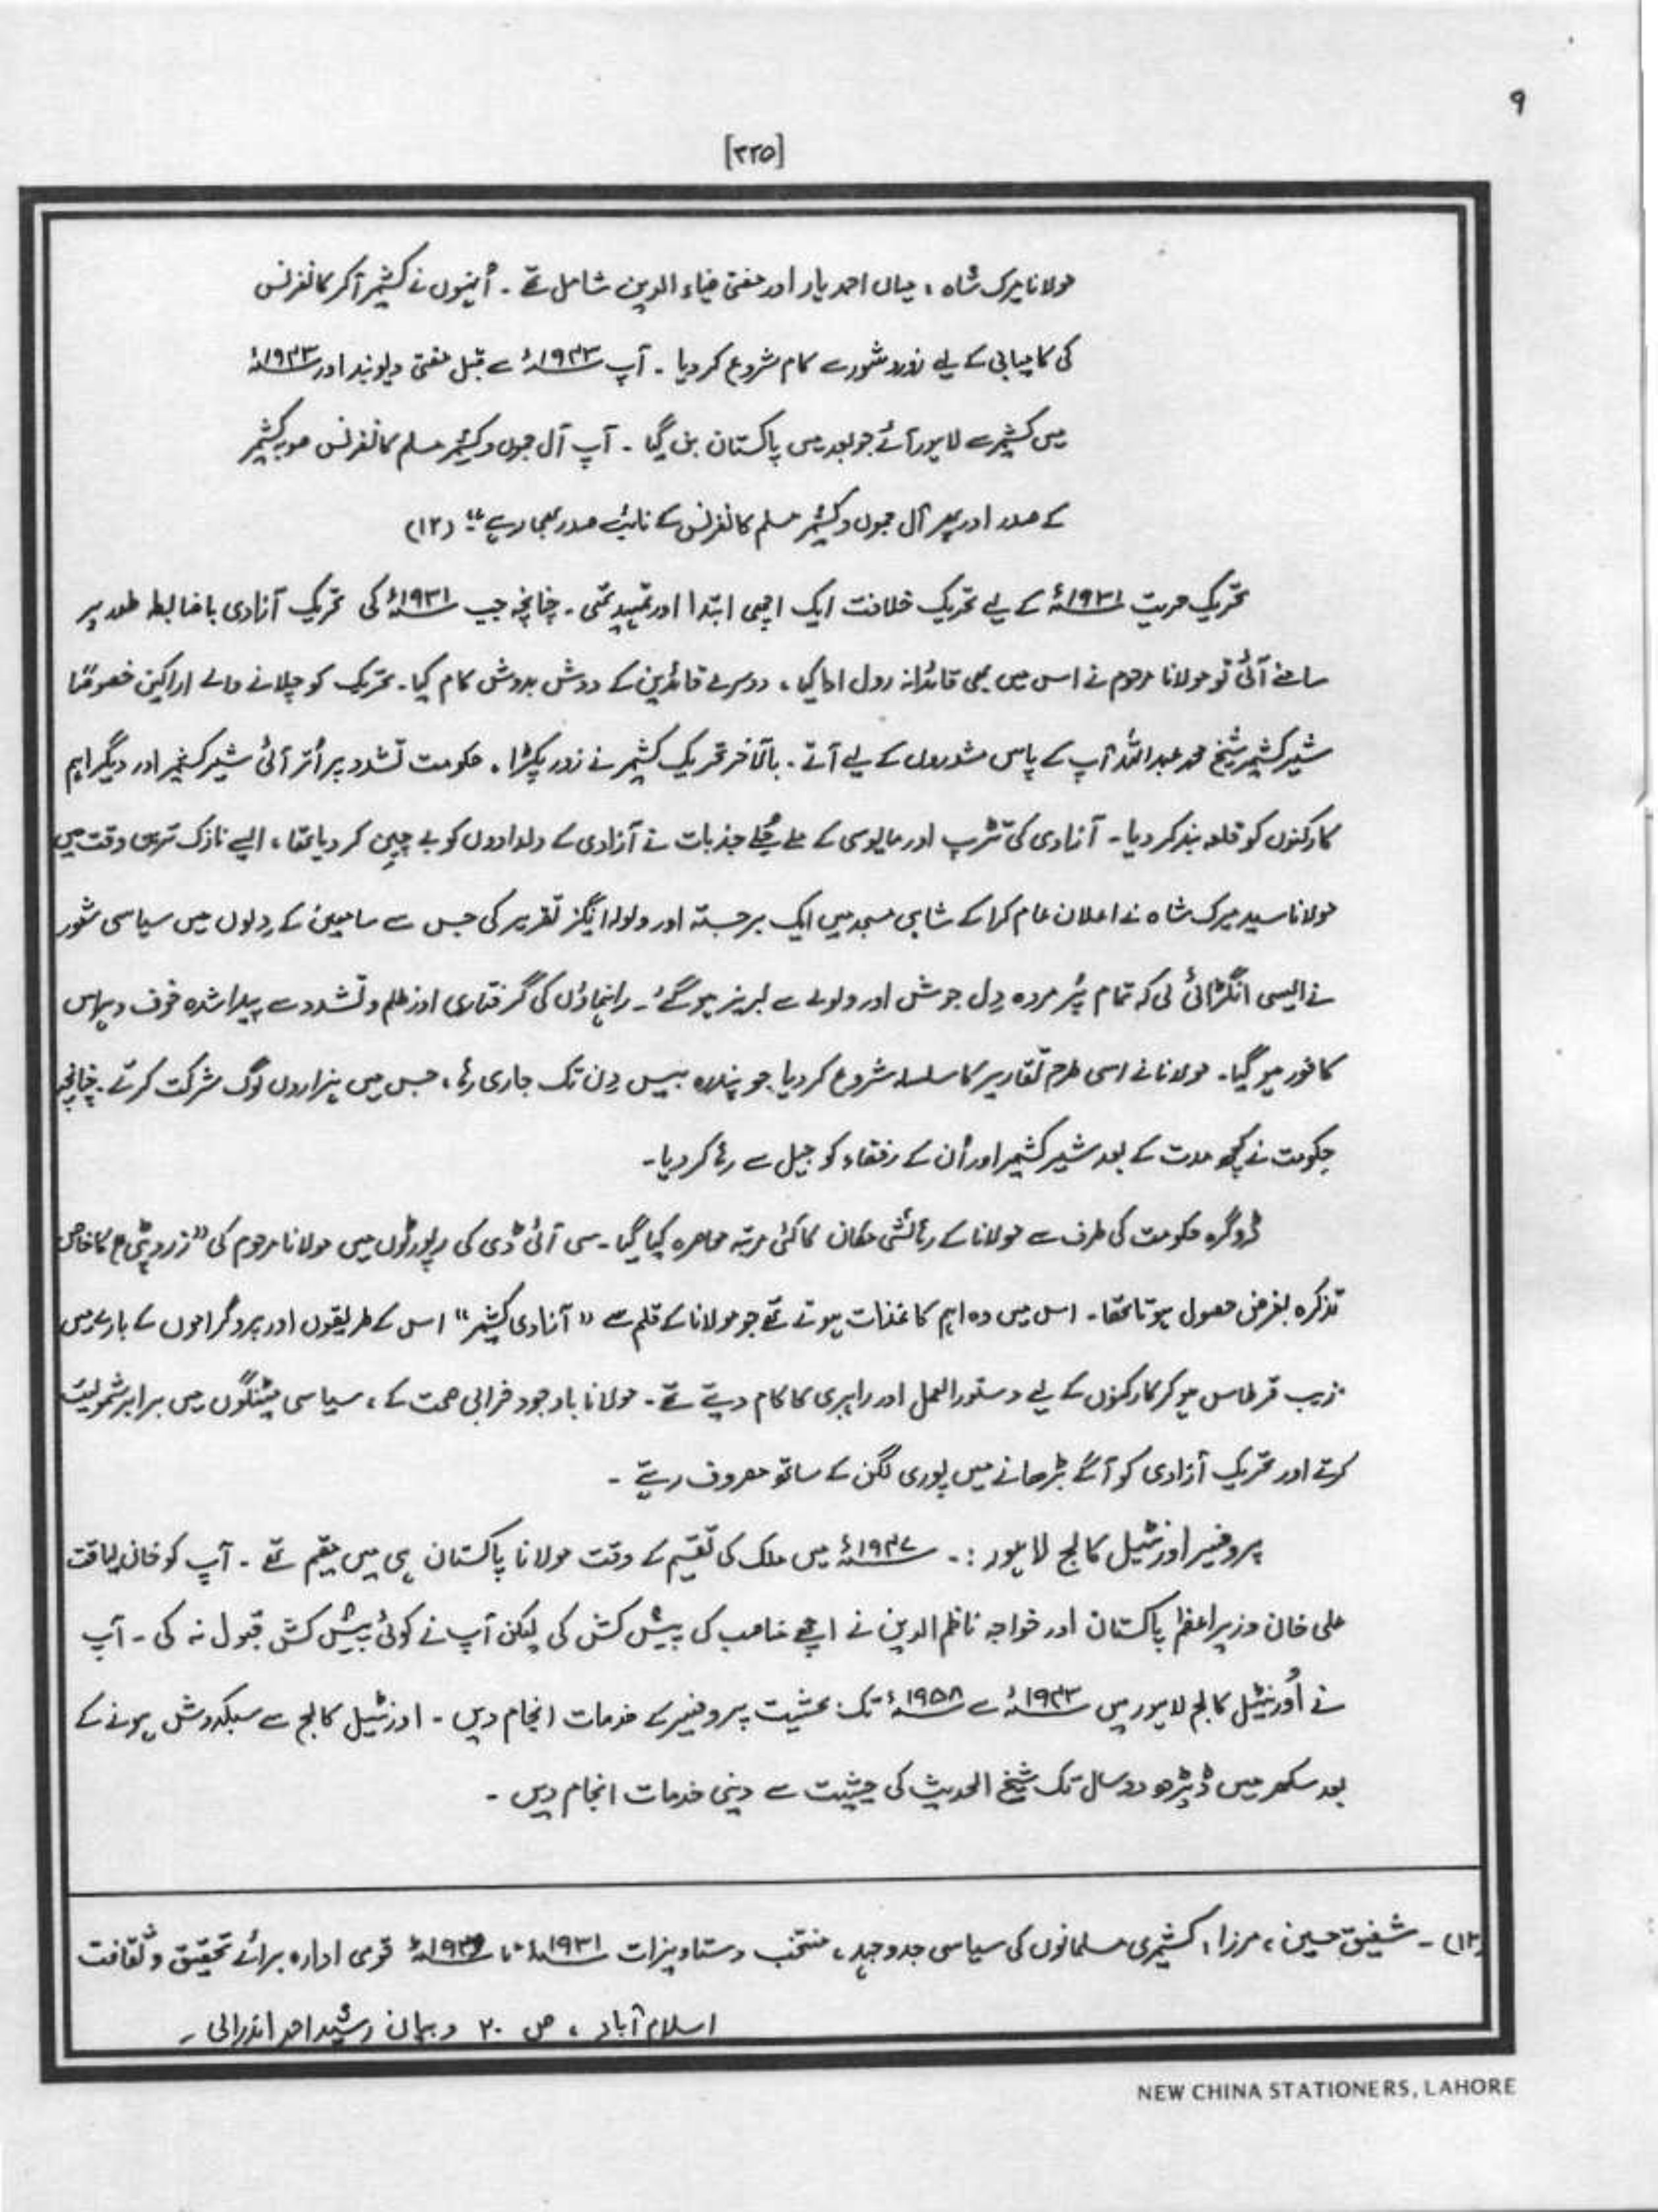 ۹
[۲۲۵]
مولانا میرک شاہ ، میاں احمد یار اور مفتی ضیاء الدین شامل تھے ۔ اُنہوں نے کشمیر آکر کانفرنس
کی کامیابی کے لیے زور و شور سے کام شروع کر دیا ۔ آپ ۱۹۴۳ء سے قبل مفتی دیوبند اور ۱۹۴۳ء
میں کشمیر سے لاہور آئے جو بعد میں پاکستان بن گیا ۔ آپ آل جموں و کشمیر مسلم کانفرنس صوبہ کشمیر
کے صدر اور پھر آل جموں و کشمیر مسلم کانفرنس کے نائب صدر بھی رہے ‘‘ (۱۲)
تحریک حریت ۱۹۳۱ء کے لیے تحریک خلافت ایک اچھی ابتدا اور تمہید تھی ۔ چنانچہ جب ۱۹۳۱ء کی تحریک آزادی باضابطہ طور پر
سامنے آئی تو مولانا مرحوم نے اس میں بھی قائدانہ رول ادا کیا ، دوسرے قائدین کے دوش بدوش کام کیا ۔ تحریک کو چلانے والے اراکین خصوصًا
شیر کشمیر شیخ محمد عبداللہ آپ کے پاس مشوروں کے لیے آتے ۔ بالآخر تحریک کشمیر نے زور پکڑا ، حکومت تشدد پر اُتر آئی شیر کشمیر اور دیگر اہم
کارکنوں کو قلعہ بند کر دیا ۔ آزادی کی تڑپ اور مایوسی کے ملے جُلے جذبات نے آزادی کے دلدادوں کو بے چین کر دیا تھا ، ایسے نازک ترین وقت میں
مولانا سید میرک شاہ نے اعلان عام کرا کے شاہی مسجد میں ایک برجستہ اور ولولہ انگیز تقریر کی جس سے سامعین کے دِلوں میں سیاسی شعور
نے ایسی انگڑائی لی کہ تمام پژمردہ دِل جوش اور ولولے سے لبریز ہو گئے ۔ راہنماؤں کی گرفتاری اور ظلم و تشدد سے پیدا شدہ خوف و ہراس
کافور ہو گیا ۔ مولانا نے اسی طرح تقاریر کا سلسلہ شروع کر دیا جو پندرہ بیس دِن تک جاری رہا ، جس میں ہزاروں لوگ شرکت کرتے ۔ چنانچہ
حکومت نے کچھ مدت کے بعد شیر کشمیر اور اُن کے رفقاء کو جیل سے رہا کر دیا ۔
ڈوگرہ حکومت کی طرف سے مولانا کے رہائشی مکان کا کئی مرتبہ محاصرہ کیا گیا ۔ سی آئی ڈی کی رپورٹوں میں مولانا مرحوم کی ’’زرد پٹی‘‘ کا خاص
تذکرہ بغرض حصول ہوتا تھا ۔ اس میں وہ اہم کاغذات ہوتے تھے جو مولانا کے قلم سے ’’آزادی کشمیر‘‘ اس کے طریقوں اور پروگراموں کے بارے میں
زیب قرطاس ہو کر کارکنوں کے لیے دستور العمل اور راہبری کا کام دیتے تھے ۔ مولانا باوجود خرابی صحت کے ، سیاسی میٹنگوں میں برابر شمولیت
کرتے اور تحریک آزادی کو آگے بڑھانے میں پوری لگن کے ساتھ مصروف رہتے ۔
پروفیسر اورنٹیل کالج لاہور :۔ ۱۹۴۷ء میں ملک کی تقسیم کے وقت مولانا پاکستان ہی میں مقیم تھے ۔ آپ کو خان لیاقت
علی خان وزیراعظم پاکستان اور خواجہ ناظم الدین نے اچھے مناصب کی پیش کش کی لیکن آپ نے کوئی پیش کش قبول نہ کی ۔ آپ
نے اُورنٹیل کالج لاہور میں ۱۹۴۳ء سے ۱۹۵۸ء تک بحثیت پروفیسر کے خدمات انجام دیں ۔ اورنٹیل کالج سے سبکدوش ہونے کے
بعد سکھر میں ڈیڑھ دو سال تک شیخ الحدیث کی حیثیت سے دینی خدمات انجام دیں ۔
(۱۲) ۔ شفیق حسین ، مرزا ، کشمیری مسلمانوں کی سیاسی جدوجہد ، منتخب دستاویزات ۱۹۳۱ء تا ۱۹۳۹ء قومی ادارہ برائے تحقیق و ثقافت
اسلام آباد ، ص ۲۰ و بیان رشید احمد اندرابی ۔
NEW CHINA STATIONERS, LAHORE